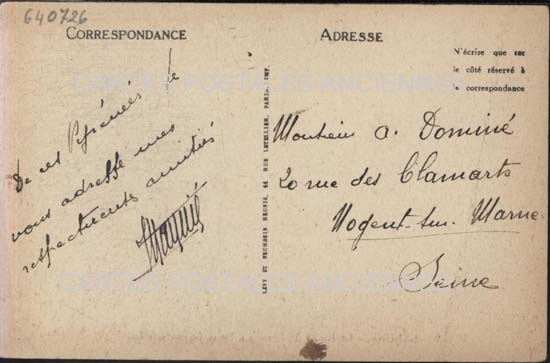 640726
CORRESPONDANCE
ADRESSE
N'écrire que sur
le côté réservé à
la correspondance
CARTES POSTALES ANCIENNES
De ces Pyrénées je
vous adresse mes
respectueuses amitiés
LÉVY ET NEURDEIN RÉUNIS, 44 RUE LETELLIER, PARIS, IMP.
Monsieur A. Dominé
20 rue des Clamarts
Nogent-sur-Marne
Seine
CARTES POSTALES ANCIENNES